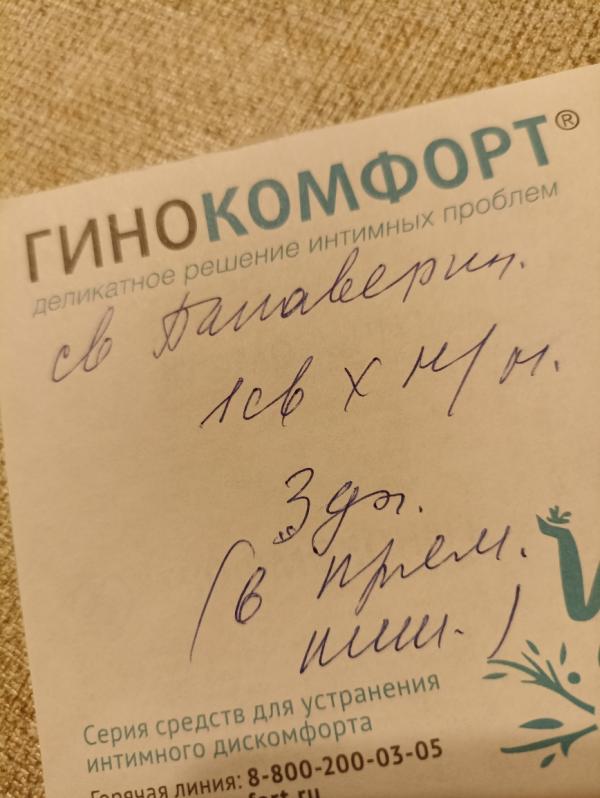 ГИНОКОМФОРТ®
деликатное решение интимных проблем
св Папаверин.
1св х н/н.
3 дн.
(в прям.
киш.)
Серия средств для устранения
интимного дискомфорта
Горячая линия: 8-800-200-03-05